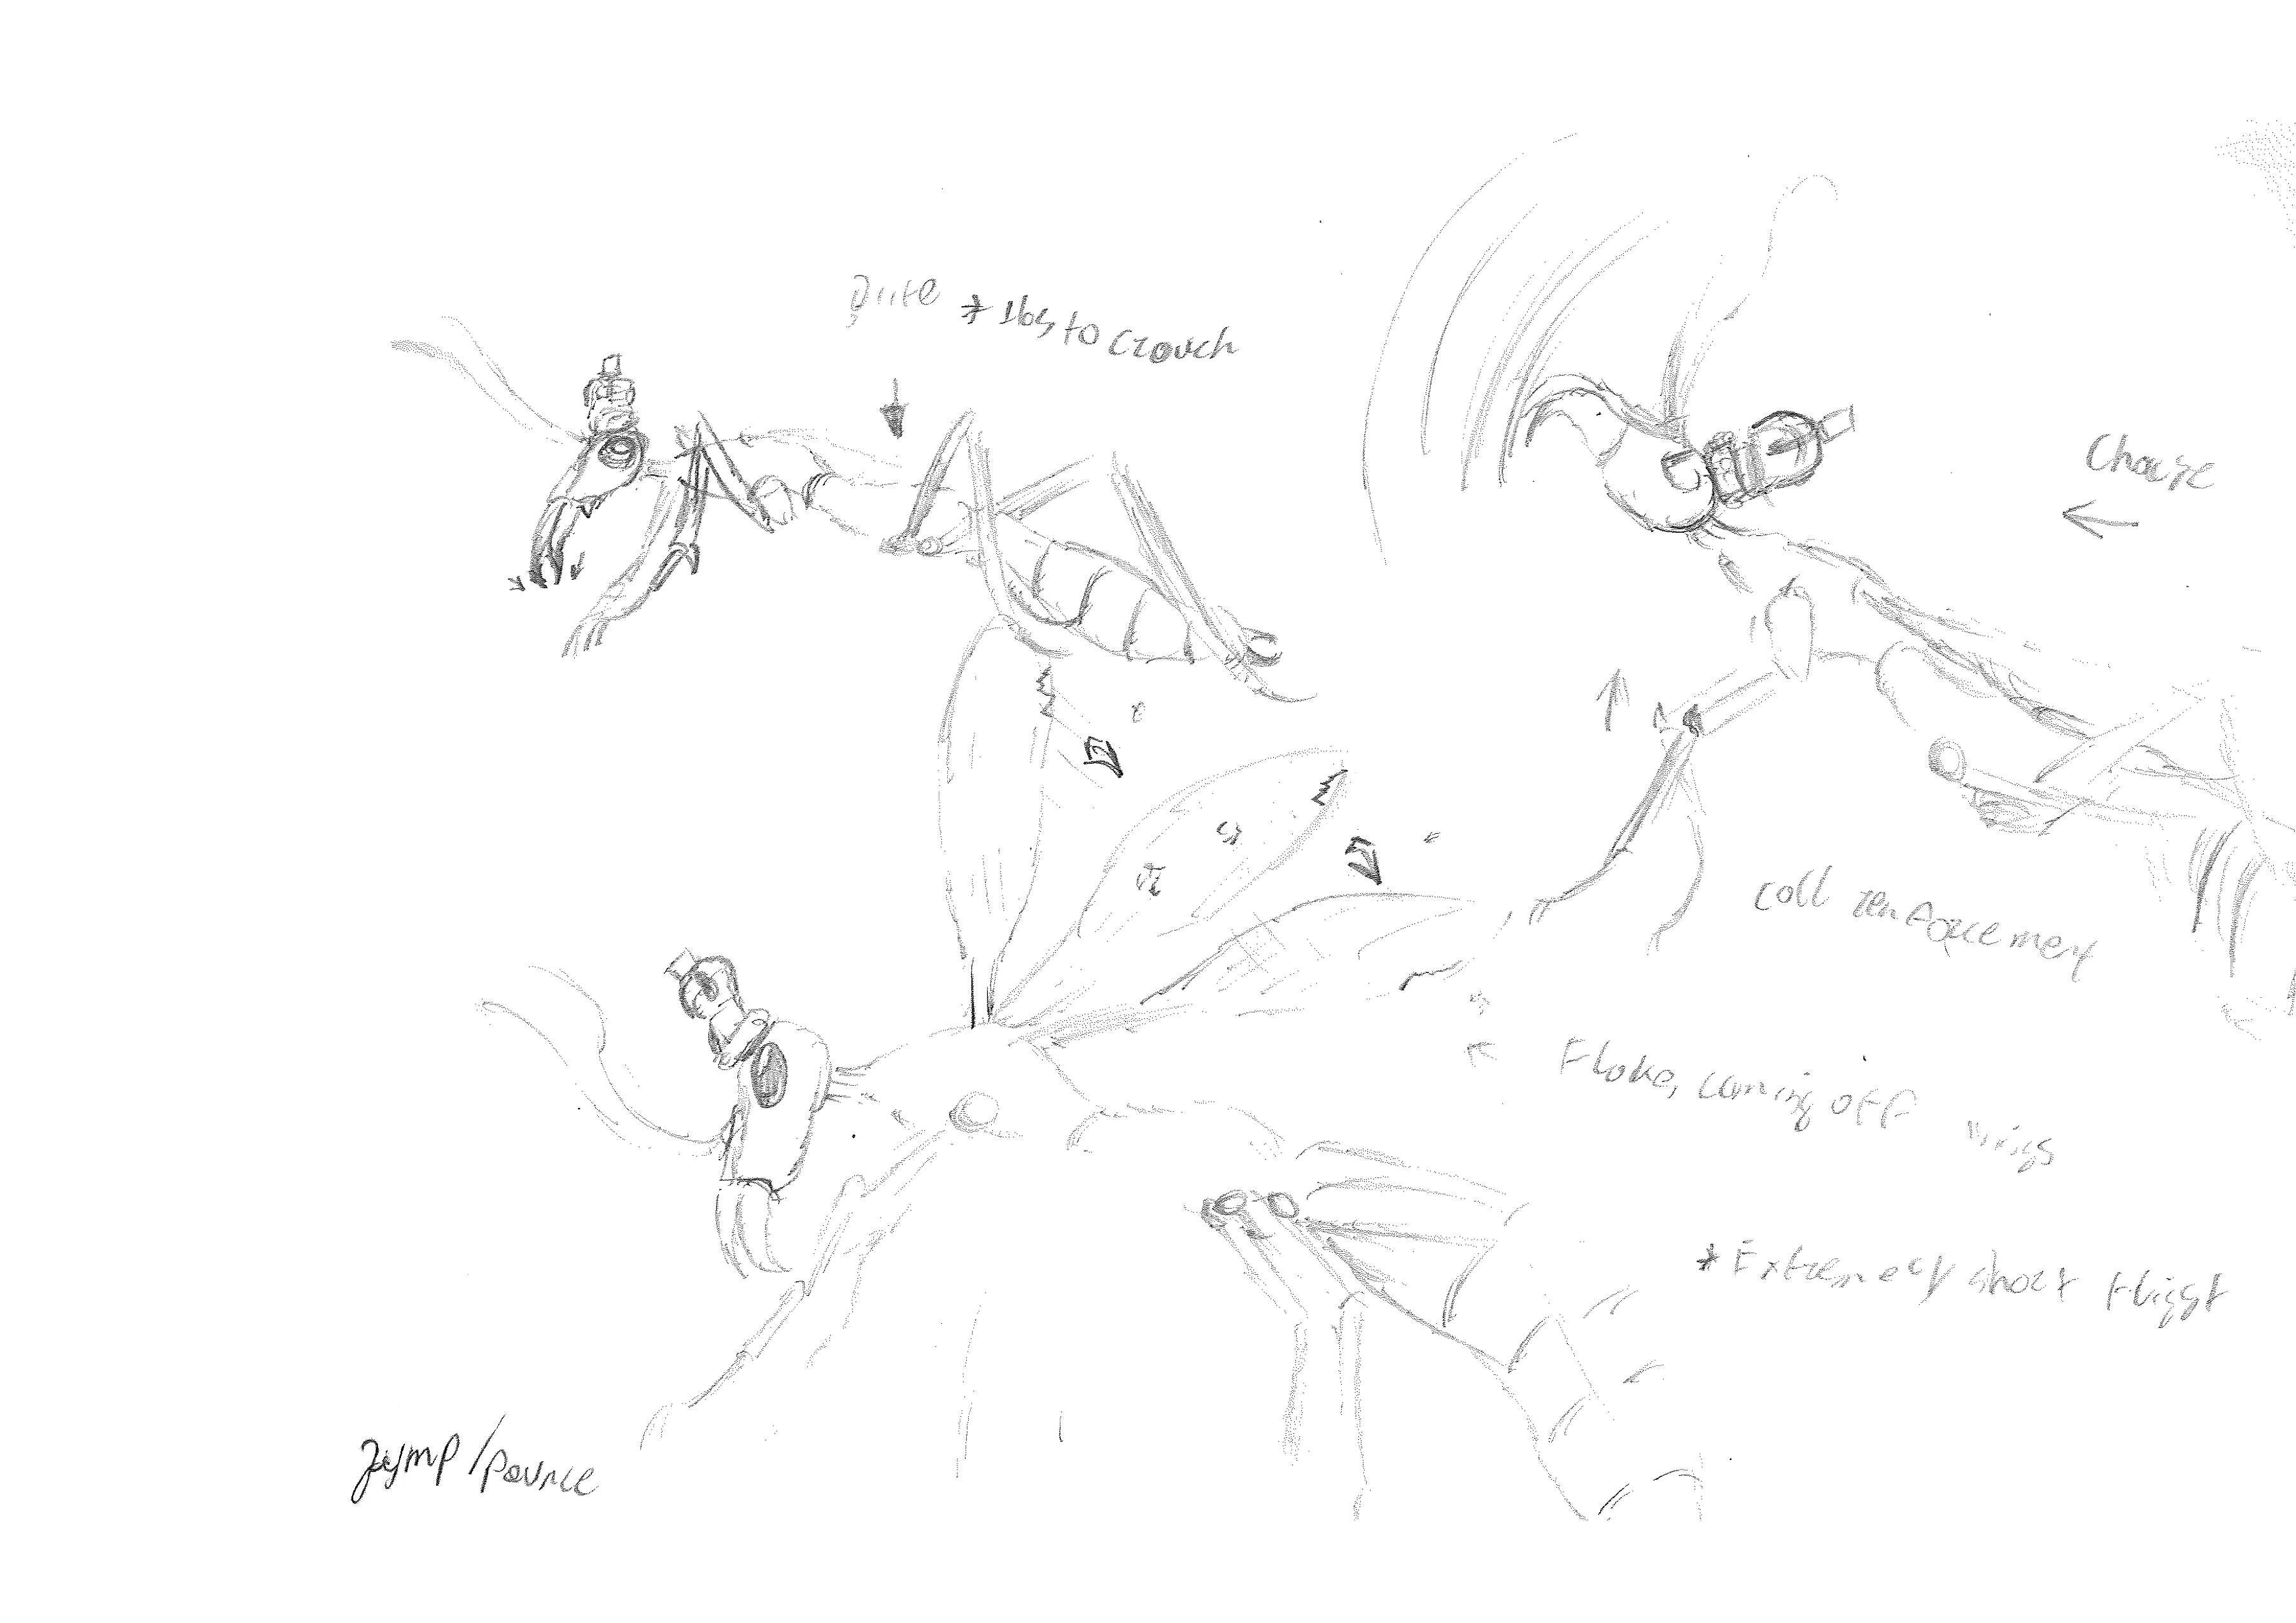 Bite * ibs to crouch
Charge
call renforcement
Flake, coming off wings
* Extremely short flight
Jump/Pounce